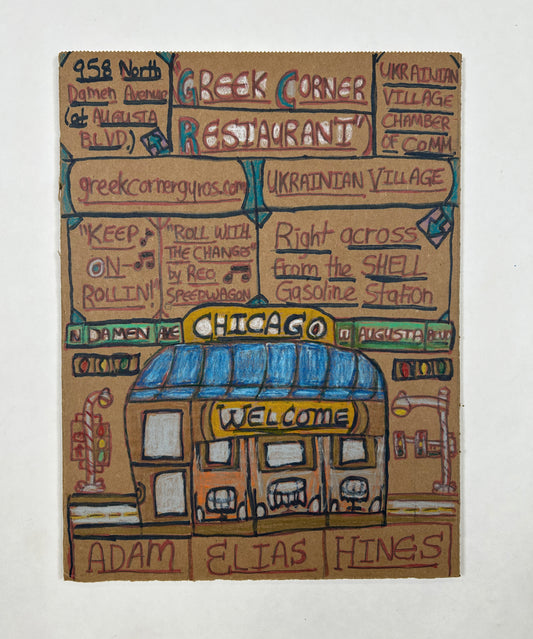 958 North
Damen Avenue
(at AUGUSTA
BLVD.)
"GREEK CORNER
RESTAURANT")
UKRAINIAN
VILLAGE
CHAMBER
OF COMM.
greekcornergyros.com
UKRAINIAN VILLAGE
"KEEP
ON
ROLLIN!"
"ROLL WITH
THE CHANGES"
by REO
SPEEDWAGON
Right across
from the SHELL
Gasoline Station
N DAMEN AVE
CHICAGO
AUGUSTA BLVD
WELCOME
ADAM ELIAS HINES